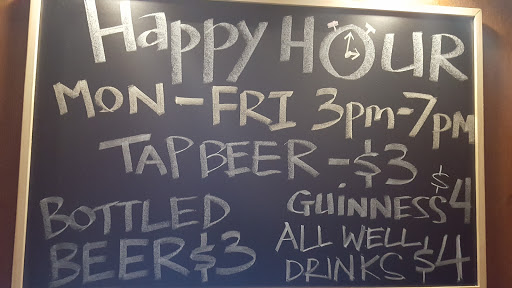 Happy HOUR
MON-FRI 3pm-7pm
TAP BEER-$3
BOTTLED
BEER $3
GUINNESS $4
ALL WELL
DRINKS $4